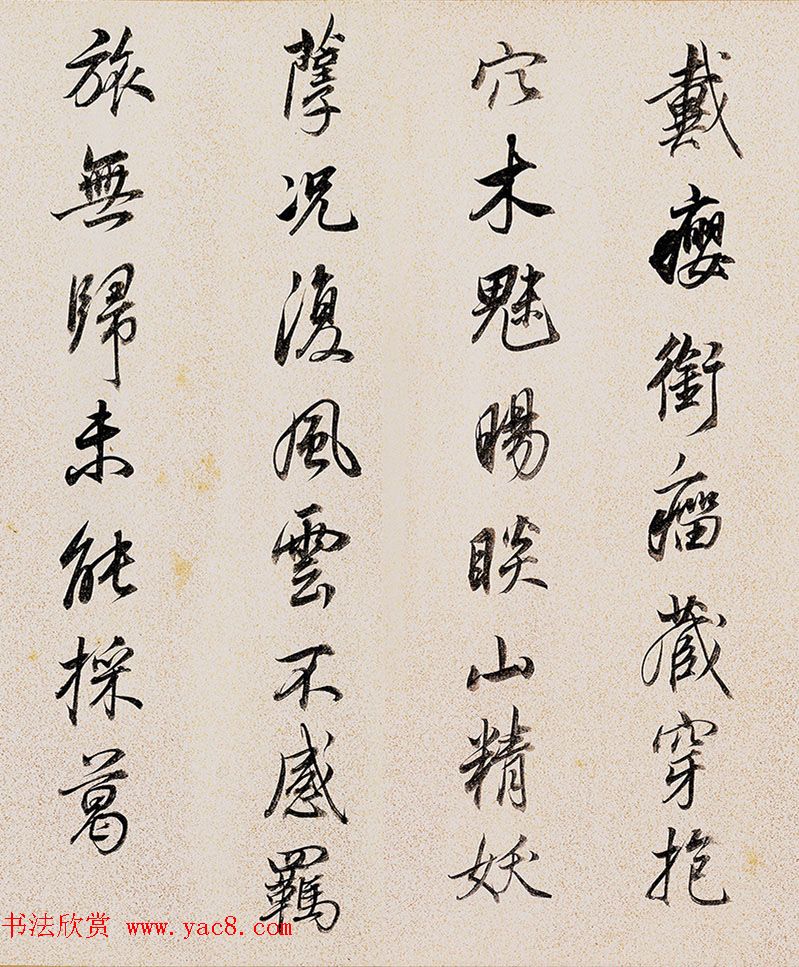 戴癭銜瘤藏穿抱
穴木魅暘睒山精妖
孽况復風雲不感羈
旅無歸未能採葛
书法欣赏 www.yac8.com